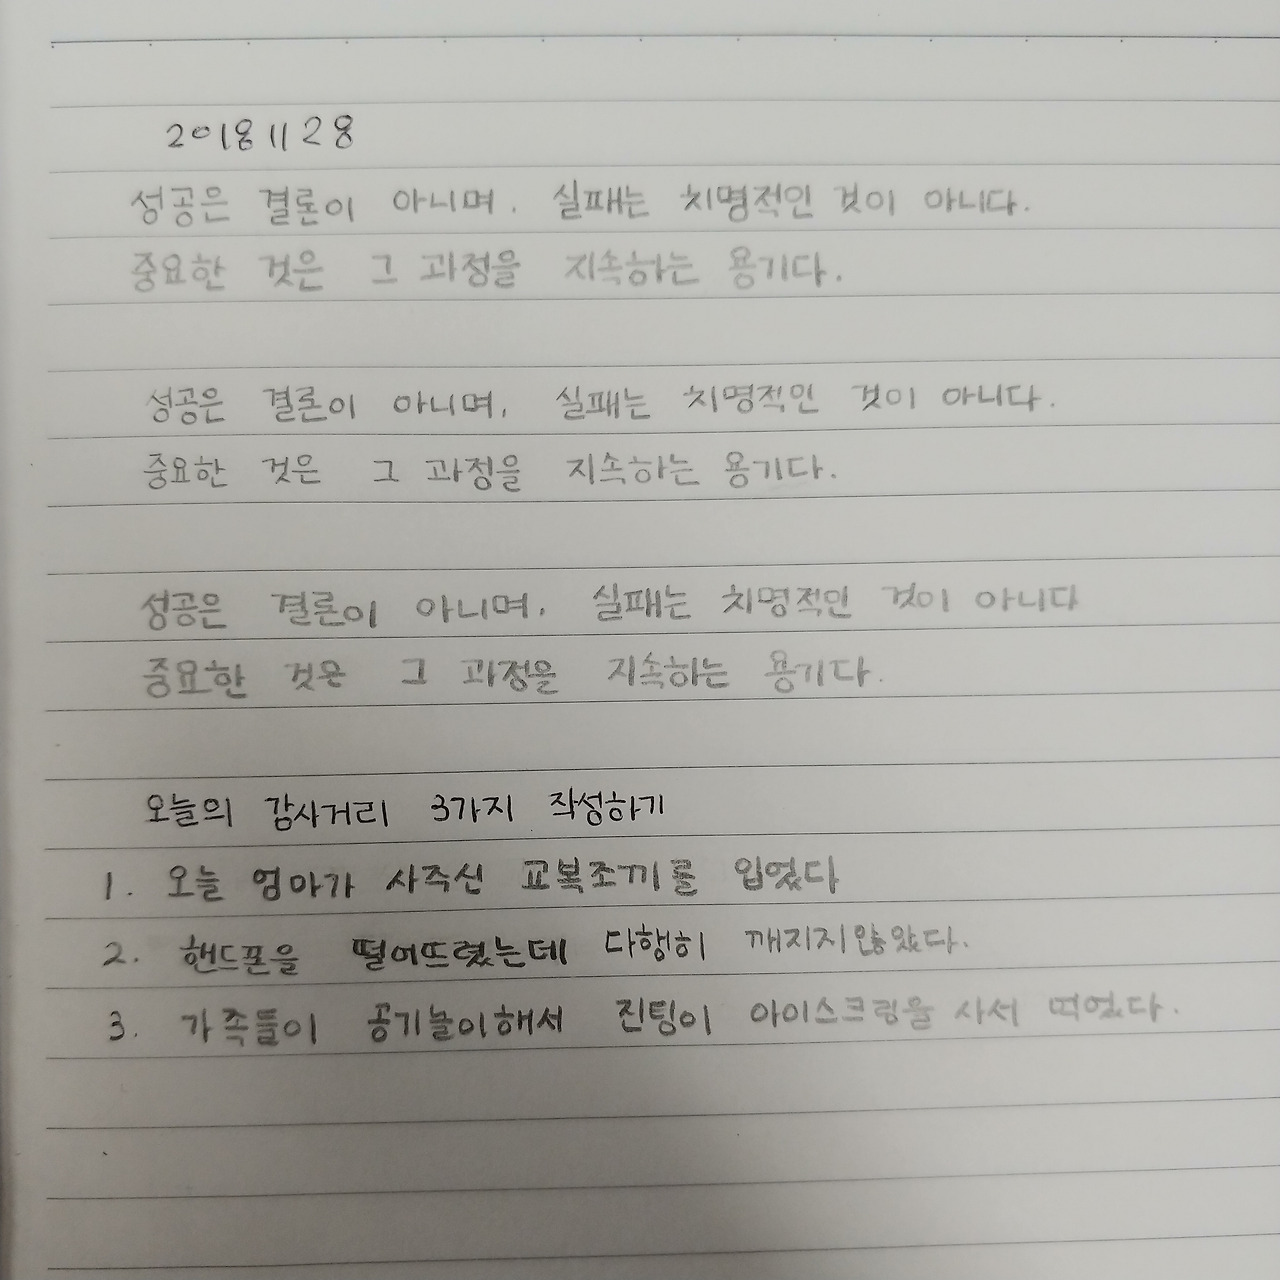 20181128
성공은 결론이 아니며, 실패는 치명적인 것이 아니다.
중요한 것은 그 과정을 지속하는 용기다.
성공은 결론이 아니며, 실패는 치명적인 것이 아니다.
중요한 것은 그 과정을 지속하는 용기다.
성공은 결론이 아니며, 실패는 치명적인 것이 아니다
중요한 것은 그 과정을 지속하는 용기다.
오늘의 감사거리 3가지 작성하기
1. 오늘 엄마가 사주신 교복조끼를 입었다
2. 핸드폰을 떨어뜨렸는데 다행히 깨지지않았다.
3. 가족들이 공기놀이해서 진팀이 아이스크림을 사서 먹었다.